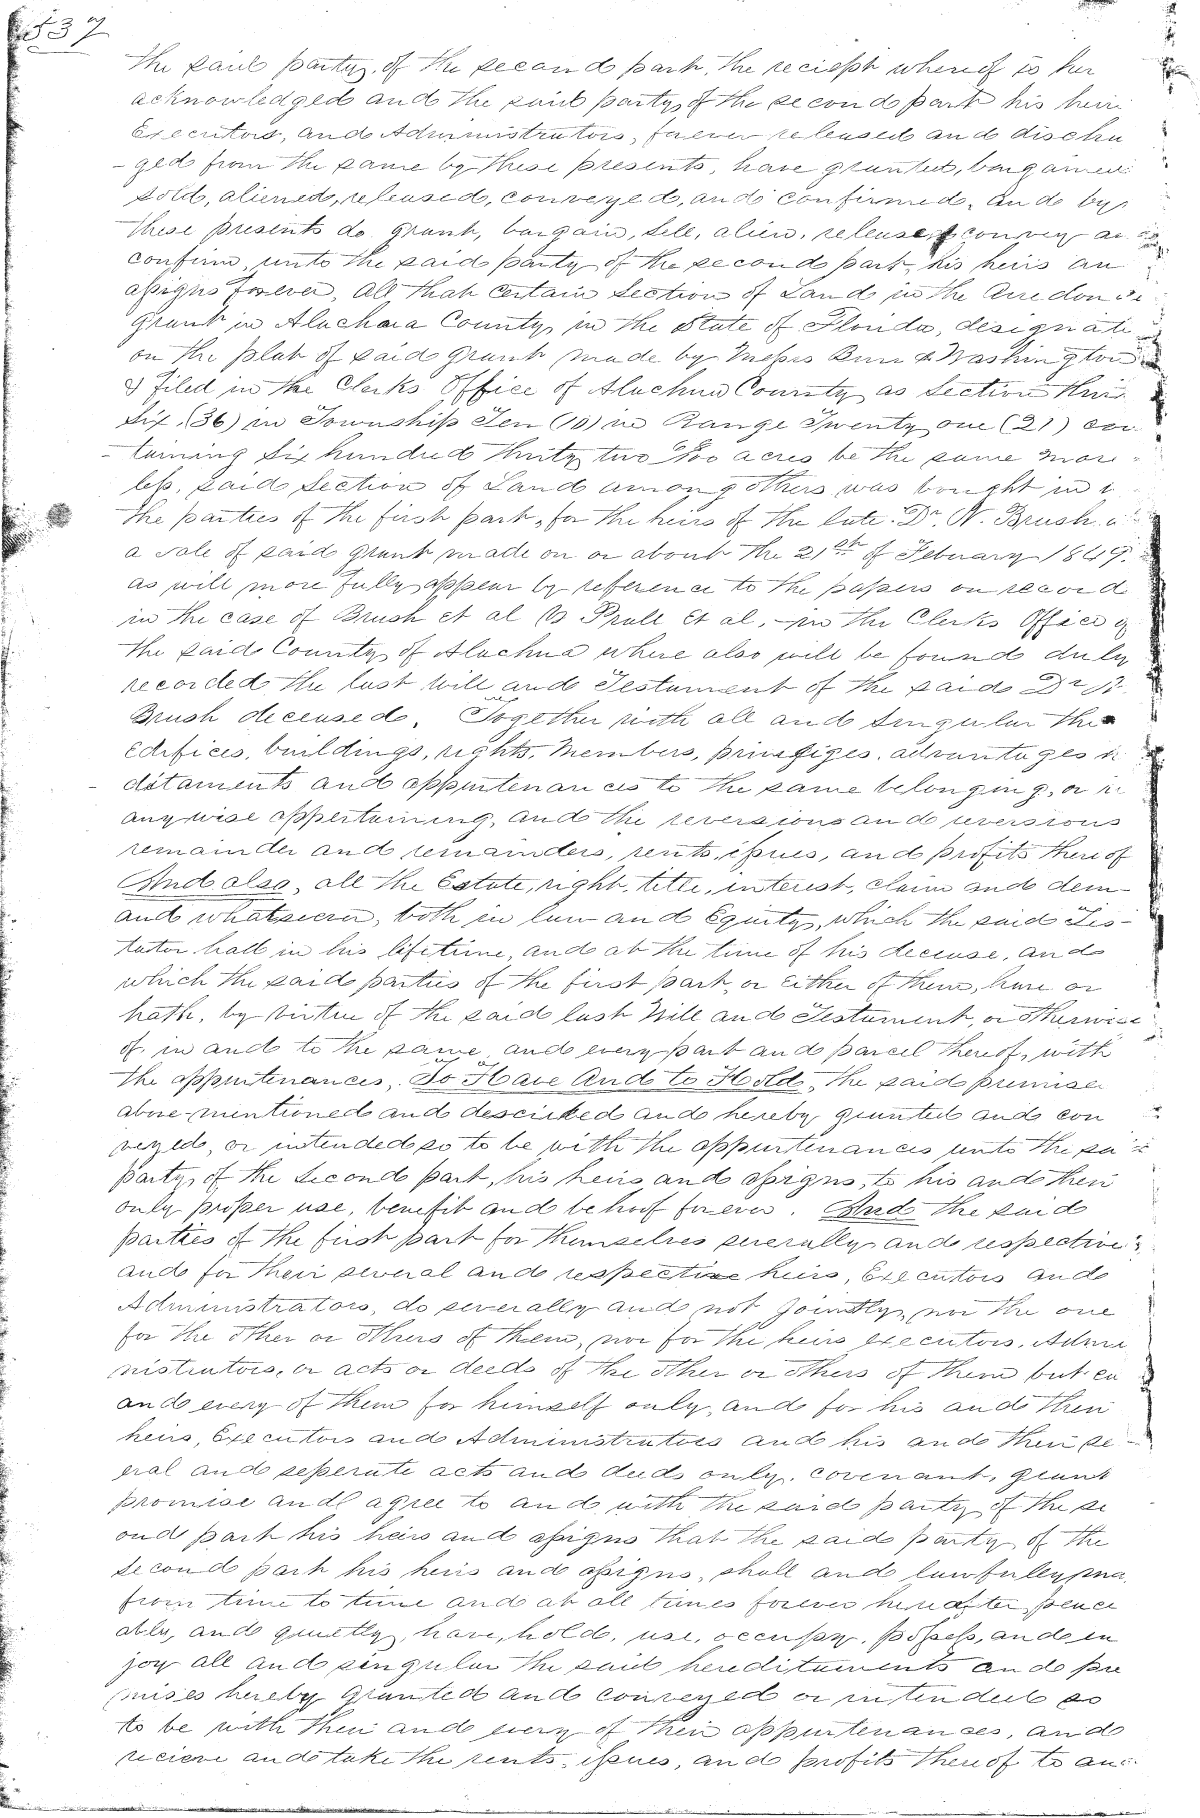 537
the said party, of the second part, the reciept where of is her
acknowledged and the said party, of the second part his heir
Executors, and Administrators, forever released and discha
-ged from the same by these presents, have granted, bargained
sold, aliened, released, conveyed, and confirmed, and by
these presents do grant, bargain, sell, alien, release & convey an
confirm, unto the said party of the second part, his heirs an
assigns forever, all, that certain Section of Land in the Arredondo
grant in Alachua County, in the State of Florida, designate
on the plat of said grant made by Messrs Burr & Washington
& filed in the Clerks Office of Alachua County as Section thir
Six, (36) in Township Ten (10) in Range Twenty one (21) con
-taining Six hundred thirty two /100 acres be the same more
less, said Section of Land among others, was bought in
the parties of the first part, for the heirs of the late Dr. N. Brush a
a sale of said grant made on or about the 21st of Febuary 1849.
as will more fully appear by reference to the papers on record
in the case of Brush et al vs Prall et al. in the Clerks Office of
the said County, of Alachua where also will be found duly
recorded the last Will and Testament of the said Dr N.
Brush deceased. Together with all and singular the
edifices, buildings, rights, members, priviliges, advantages h
- ditaments and appurtenances to the same belonging, or in
any wise appertaining, and the reversion and reversions
remainder and remainders, rents, issues, and profits thereof
And also, all the Estate, right, title, interest, claim and dem-
and whatsoever, both in law and Equity, which the said Tes-
tator hath in his lifetime, and at the time of his decease, and
which the said parties of the first part, or either of them, have or
hath, by virtue of the said last Will and Testament, or otherwise
of in and to the same, and every part and parcel thereof, with
the appurtenances, To Have And to Hold, the said premises
above mentioned and described and hereby granted and con
veyed, or intended so to be with the appurtenances unto the sai
party, of the Second part, his heirs and assigns, to his and their
only proper use, benefit and behoof forever. And the said
parties of the first part for themselves severally and respective
and for their several and respective heirs, Executors and
Administrators, do severally and not jointly, nor the one
for the other or others of them, nor for the heirs executors, Admi
nistrators, or acts or deeds of the other or others of them but ea
and every of them for himself only, and for his and their
heirs, Executors and Administrators and his and their se-
eral and seperate acts and deeds only, covenant, grant
promise and agree to and with the said party, of the se
ond part his heirs and assigns that the said party of the
second part his heirs and assigns, shall and lawfully ma
from time to time and at all times forever hereafter peace
ably, and quietly, have, hold, use, occupy, possess, and en
joy all and singular the said hereditaments and pre
mises hereby granted and conveyed or intended so
to be with their and every of their appurtenances, and
recieve and take the rents, issues, and profits thereof to an